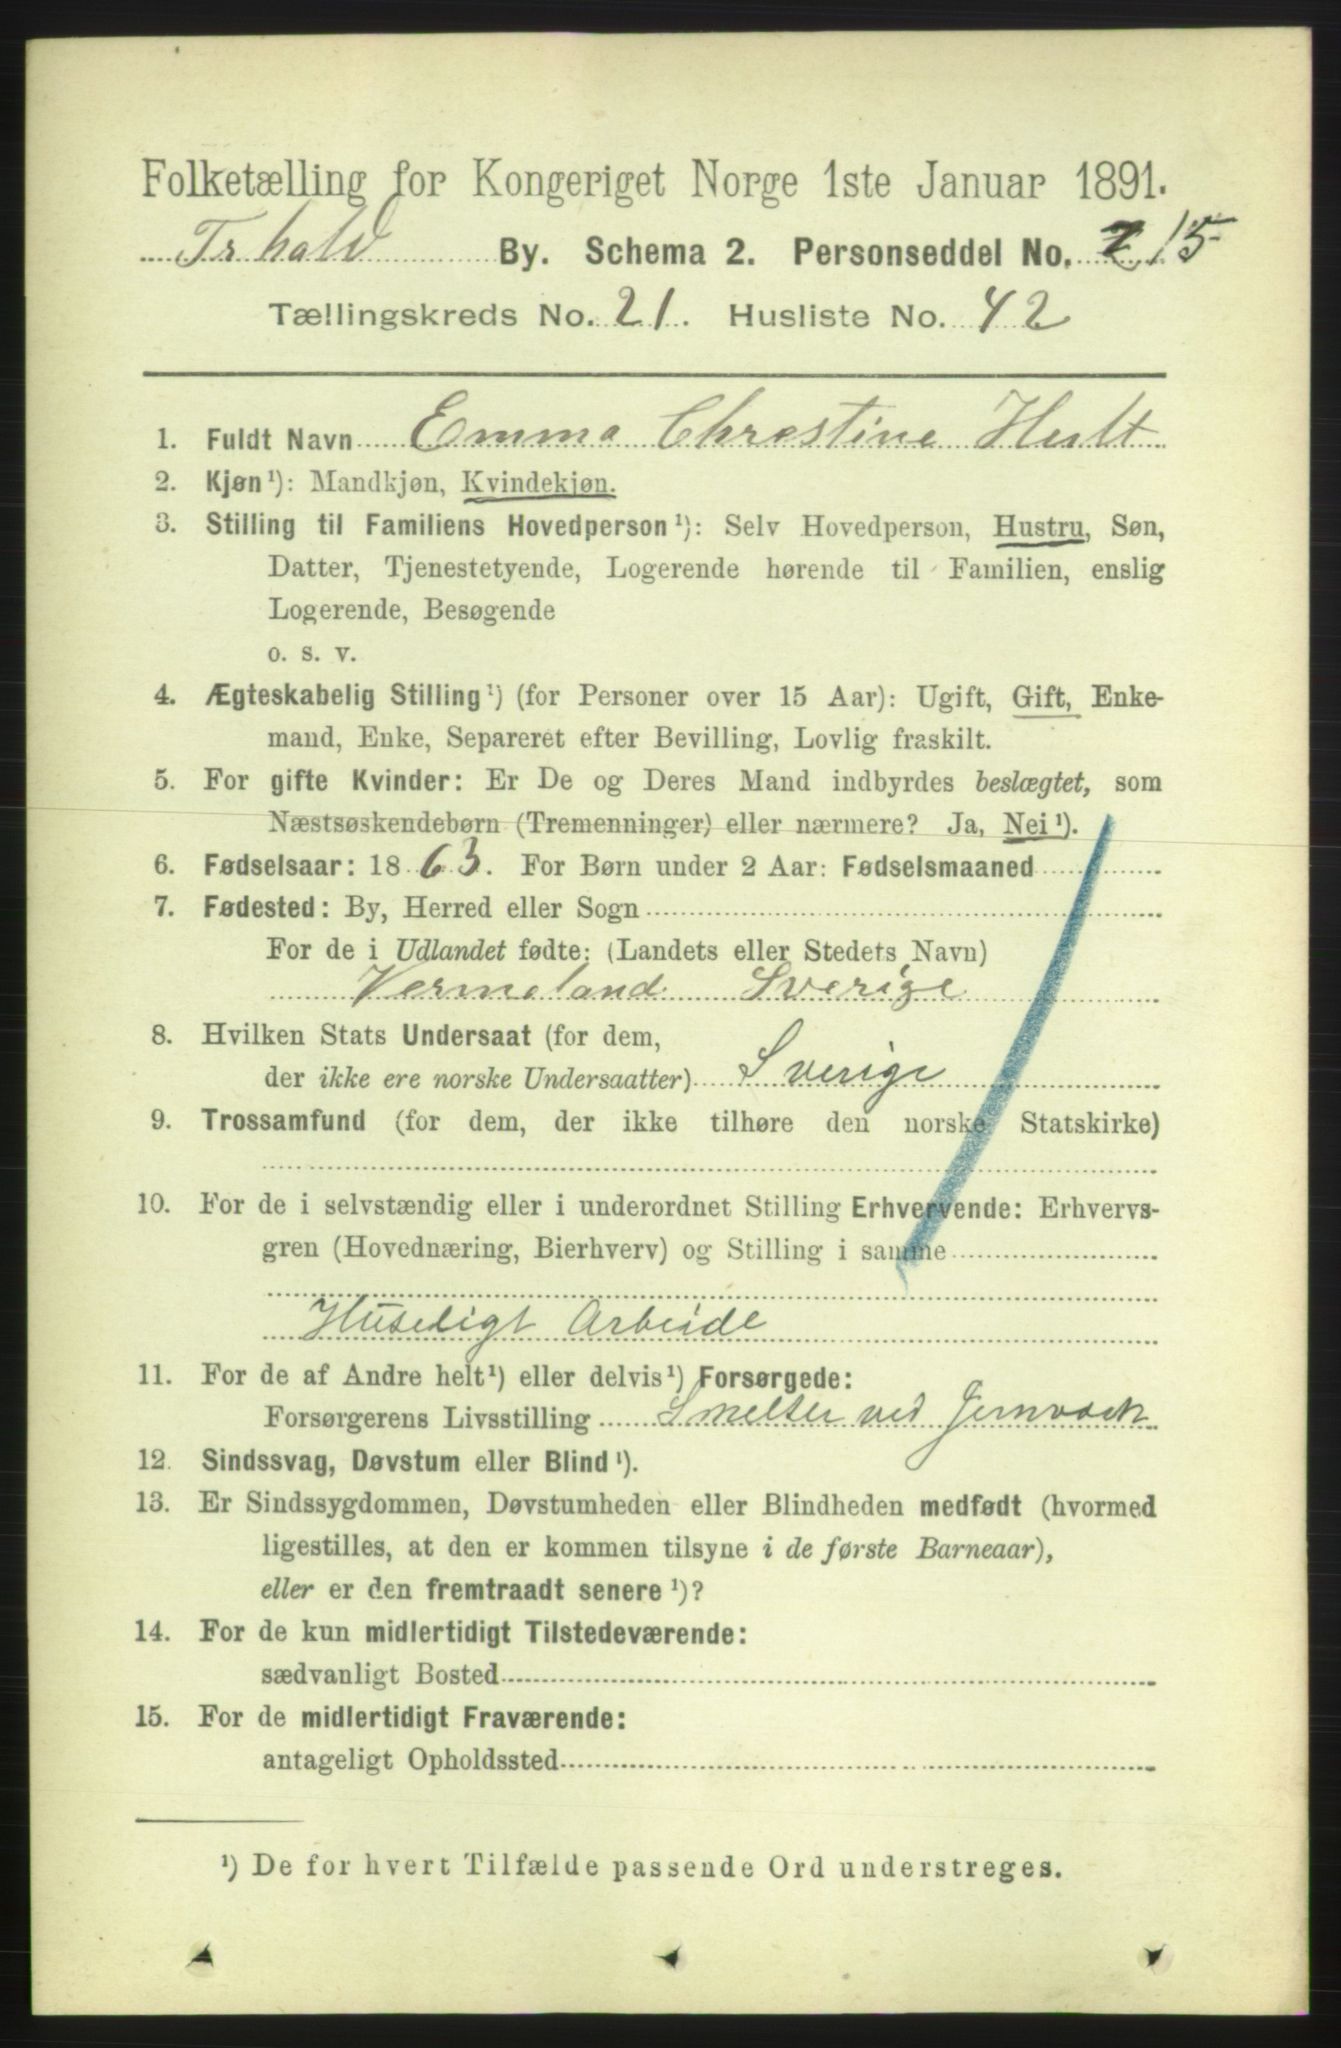 Folketælling for Kongeriget Norge 1ste Januar 1891.
Tr.hald By. Schema 2. Personseddel No. 15
Tællingskreds No. 21. Husliste No. 42
1. Fuldt Navn Emma Chrestine Hult
2. Kjøn¹): Mandkjøn, Kvindekjøn.
3. Stilling til Familiens Hovedperson¹): Selv Hovedperson, Hustru, Søn,
Datter, Tjenestetyende, Logerende hørende til Familien, enslig
Logerende, Besøgende
o. s. v.
4. Ægteskabelig Stilling¹) (for Personer over 15 Aar): Ugift, Gift, Enke-
mand, Enke, Separeret efter Bevilling, Lovlig fraskilt.
5. For gifte Kvinder: Er De og Deres Mand indbyrdes beslægtet, som
Næstsøskendebørn (Tremenninger) eller nærmere? Ja, Nei¹).
6. Fødselsaar: 1863. For Børn under 2 Aar: Fødselsmaaned
7. Fødested: By, Herred eller Sogn
For de i Udlandet fødte: (Landets eller Stedets Navn)
Vermeland Sverige
8. Hvilken Stats Undersaat (for dem,
der ikke ere norske Undersaatter) Sverige
9. Trossamfund (for dem, der ikke tilhøre den norske Statskirke)
10. For de i selvstændig eller i underordnet Stilling Erhvervende: Erhvervs-
gren (Hovednæring, Bierhverv) og Stilling i samme
Huseligt Arbeide
11. For de af Andre helt¹) eller delvis¹) Forsørgede:
Forsørgerens Livsstilling Smelter ved Jernværk
12. Sindssvag, Døvstum eller Blind¹).
13. Er Sindssygdommen, Døvstumheden eller Blindheden medfødt (hvormed
ligestilles, at den er kommen tilsyne i de første Barneaar),
eller er den fremtraadt senere¹)?
14. For de kun midlertidigt Tilstedeværende:
sædvanligt Bosted
15. For de midlertidigt Fraværende:
antageligt Opholdssted
¹) De for hvert Tilfælde passende Ord understreges.